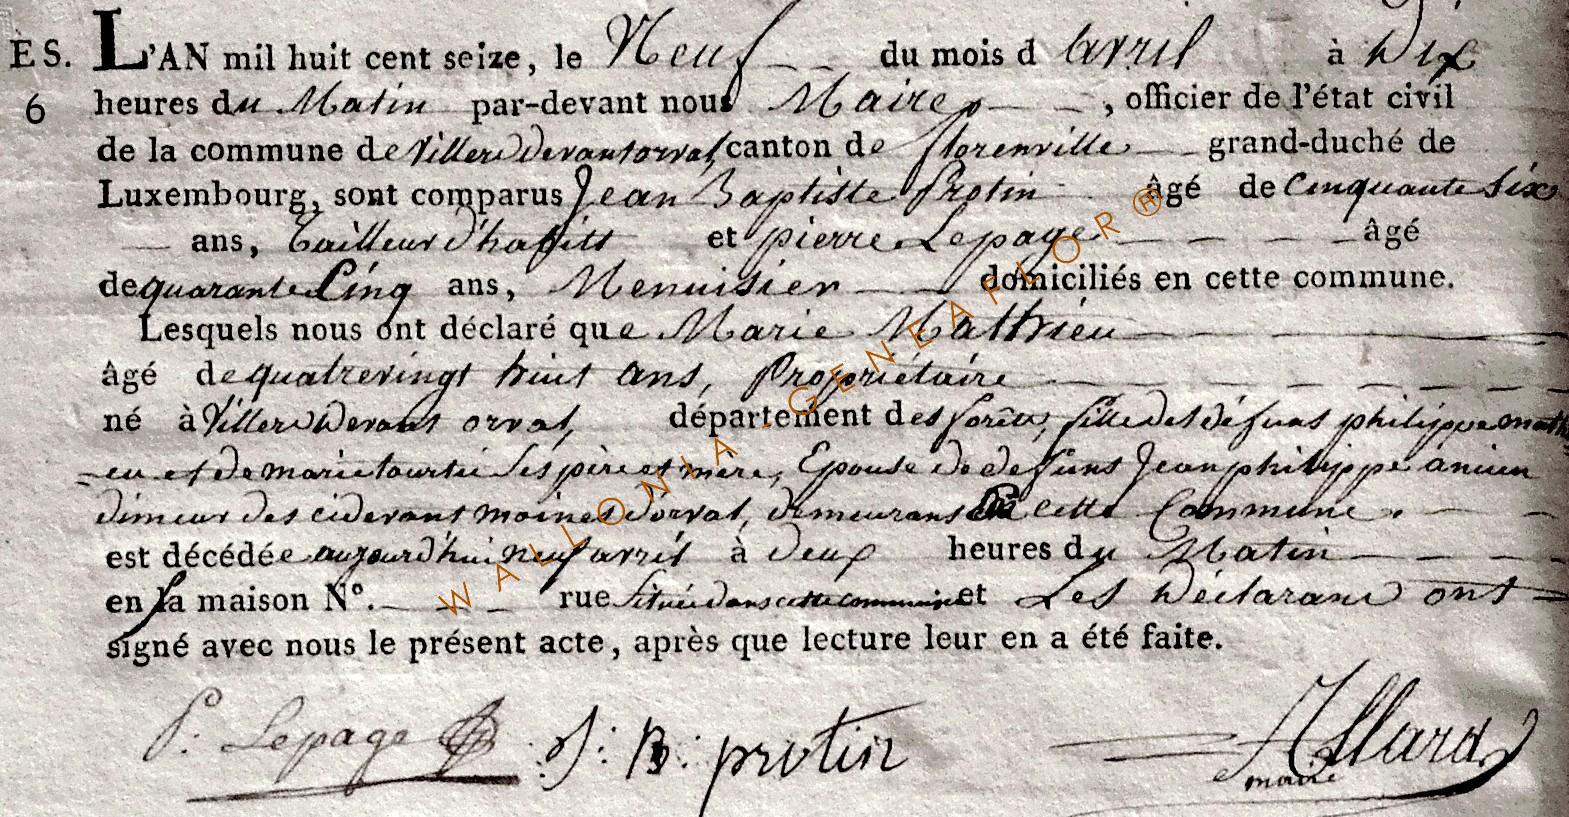 ES. L'AN mil huit cent seize, le Neuf du mois d avril à Dix
6 heures du Matin par-devant nous Maire, officier de l'état civil
de la commune de Villers devant orval, canton de florenville grand-duché de
Luxembourg, sont comparus Jean Baptiste Protin âgé de Cinquante Six
ans, Tailleur d'habits et pierre Lepage âgé
de quarante Cinq ans, Menuisier domiciliés en cette commune.
Lesquels nous ont déclaré que Marie Mathieu
âgé de quatrevingt huit ans, Propriétaire
né à Villers Devant orval, département des forêts, fille des défuns philippe math
-eu et de marie tourtié Ses père et mère, Epouse de defuns Jean philippe ancien
dimeur des cidevant moines d'orval, demeurans cette Commune.
est décédée aujourd'hui neuf avril à deux heures du Matin
en sa maison N°. rue Située dans cette commune et Les Déclarans ont
signé avec nous le présent acte, après que lecture leur en a été faite.
P. Lepage J: B: protin
maire
WALLONIA-GENEAFLOR®